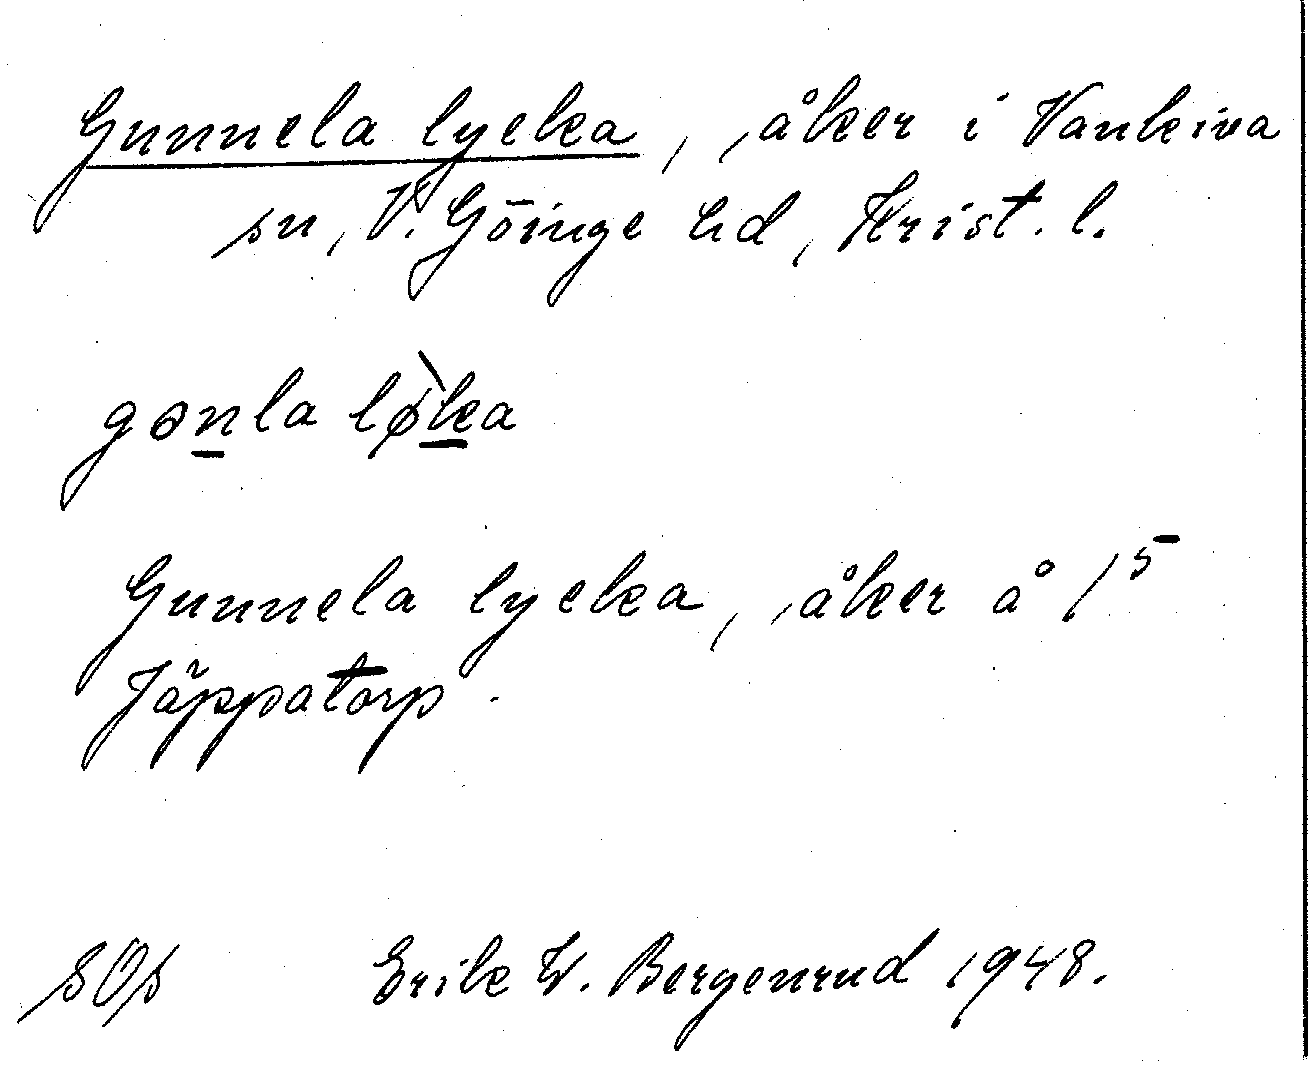 Gunnela lycka, åker i Vankiva
sn, V. Göinge hd, Krist. l.
gɵnla lø̀ka
Gunnela lycka, åker å 15
Jäppatorp.
sOs Erik W. Bergenrud 1948.